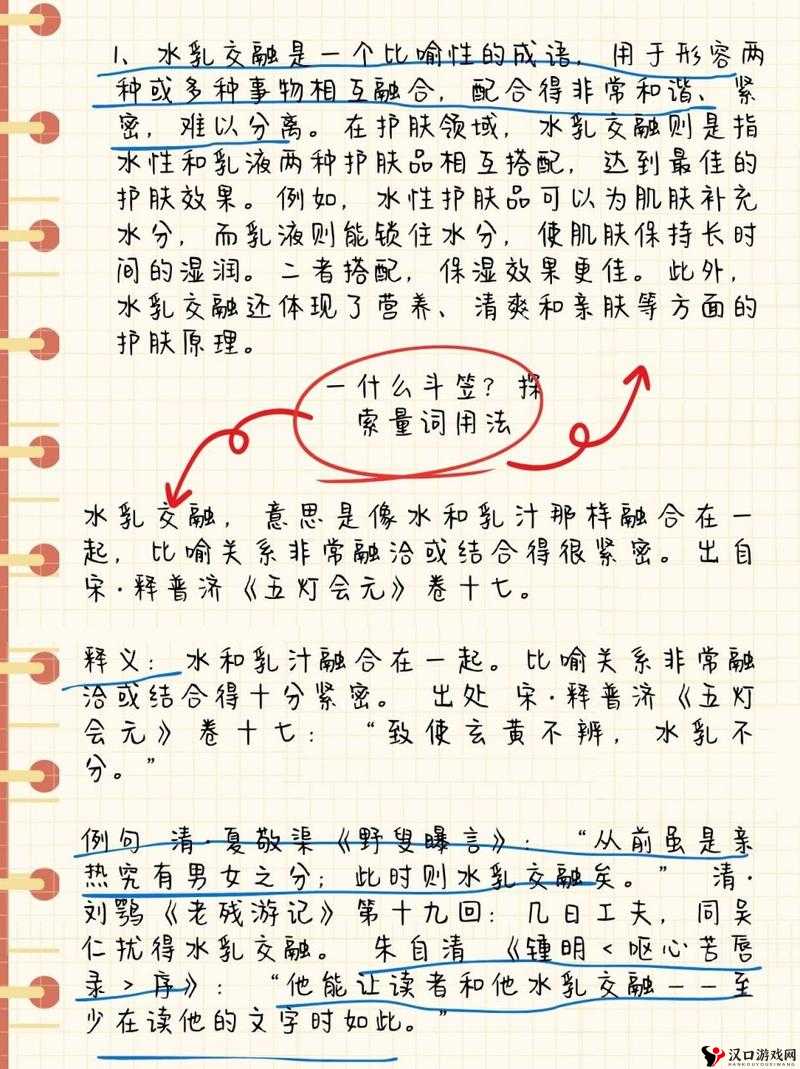 1、水乳交融是一个比喻性的成语，用于形容两
种或多种事物相互融合，配合得非常和谐、紧
密，难以分离。在护肤领域，水乳交融则是指
水性和乳液两种护肤品相互搭配，达到最佳的
护肤效果。例如，水性护肤品可以为肌肤补充
水分，而乳液则能锁住水分，使肌肤保持长时
间的湿润。二者搭配，保湿效果更佳。此外，
水乳交融还体现了营养、清爽和亲肤等方面的
护肤原理。
一什么斗笠？探
索量词用法
水乳交融，意思是像水和乳汁那样融合在一
起，比喻关系非常融洽或结合得很紧密。出自
宋·释普济《五灯会元》卷十七。
释义：水和乳汁融合在一起。比喻关系非常融
洽或结合得十分紧密。 出处 宋·释普济《五灯
会元》卷十七：“致使玄黄不辨，水乳不
分。”
例句 清·夏敬渠《野叟曝言》：“从前虽是亲
热究有男女之分；此时则水乳交融矣。” 清·
刘鹗《老残游记》第十九回：几日工夫，同吴
仁扰得水乳交融。 朱自清 《锺明<呕心苦唇
录>序》：“他能让读者和他水乳交融——至
少在读他的文字时如此。”
汉口游戏网
HANKOUYOUXIWANG